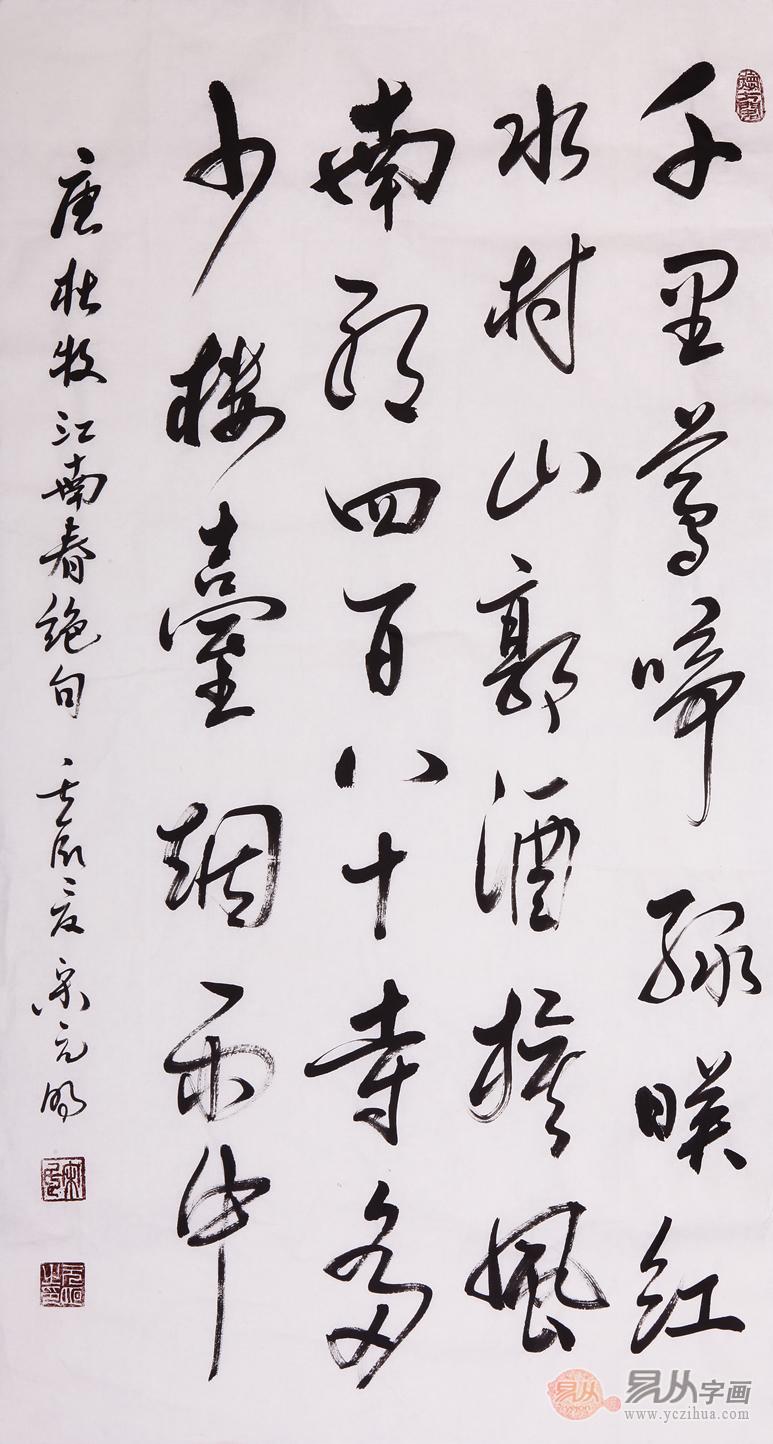 千里鶯啼綠映紅
水村山郭酒旗風
南朝四百八十寺多
少樓臺烟雨中
唐杜牧江南春絕句 壬辰夏 宋元明
易从
易从字画
www.yczihua.com